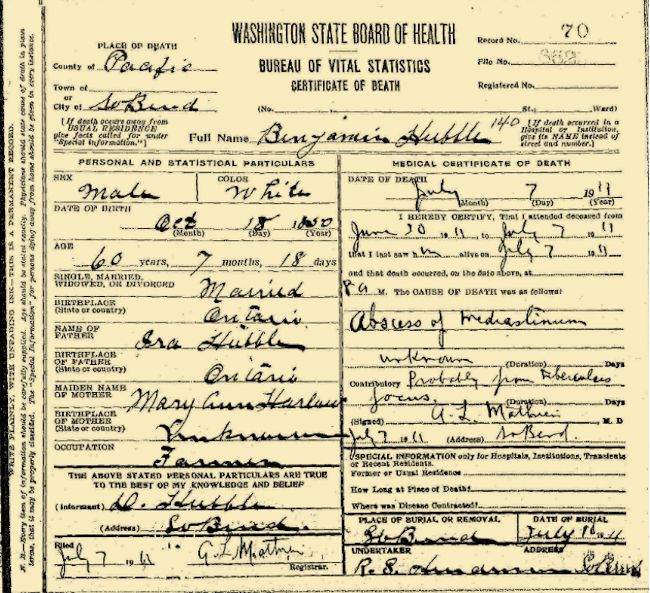 WASHINGTON STATE BOARD OF HEALTH
BUREAU OF VITAL STATISTICS
CERTIFICATE OF DEATH
Record No. 70
File No.
Registered No.
PLACE OF DEATH
County of Pacific
Town of
or
City of So Bend
(No. St., Ward)
(If death occurs away from
USUAL RESIDENCE
give facts called for under
"Special Information.")
Full Name Benjamin Hubble 140
(If death occurred in a
Hospital or Institution,
give its NAME instead of
street and number.)
PERSONAL AND STATISTICAL PARTICULARS
SEX Male
COLOR White
DATE OF BIRTH Oct 18 1850
(Month) (Day) (Year)
AGE
60 years, 7 months, 18 days
SINGLE, MARRIED,
WIDOWED, OR DIVORCED Married
BIRTHPLACE
(State or country) Ontario
NAME OF
FATHER Ira Hubble
BIRTHPLACE
OF FATHER
(State or country) Ontario
MAIDEN NAME
OF MOTHER Mary Ann
BIRTHPLACE
OF MOTHER
(State or country) Unknown
OCCUPATION Farmer
THE ABOVE STATED PERSONAL PARTICULARS ARE TRUE
TO THE BEST OF MY KNOWLEDGE AND BELIEF
(Informant) Hubble
(Address) So Bend.
Filed
July 7 1911
Registrar.
MEDICAL CERTIFICATE OF DEATH
DATE OF DEATH July 7 1911
(Month) (Day) (Year)
I HEREBY CERTIFY, That I attended deceased from
June 30 1911 to July 7 1911
that I last saw him alive on July 7 1911
and that death occurred, on the date above, at
M. The CAUSE OF DEATH was as follows:
Abscess of Mediastinum
unknown (Duration) Days
Contributory Probably from Tuberculus
focus. (Duration) Days
(Signed) M. D
July 7 1911 (Address) So Bend.
SPECIAL INFORMATION only for Hospitals, Institutions, Transients
or Recent Residents.
Former or Usual Residence
How Long at Place of Death?
Where was Disease Contracted?
PLACE OF BURIAL OR REMOVAL
So Bend
DATE OF BURIAL
July
UNDERTAKER
R. S.
ADDRESS
So Bend
WRITE PLAINLY, WITH UNFADING INK—THIS IS A PERMANENT RECORD.
N. B.—Every item of information should be carefully supplied. Age should be stated exactly. Physicians should state cause of death in plain
terms, that it may be properly classified. The "Special Information" for persons dying away from home should be given in every instance.